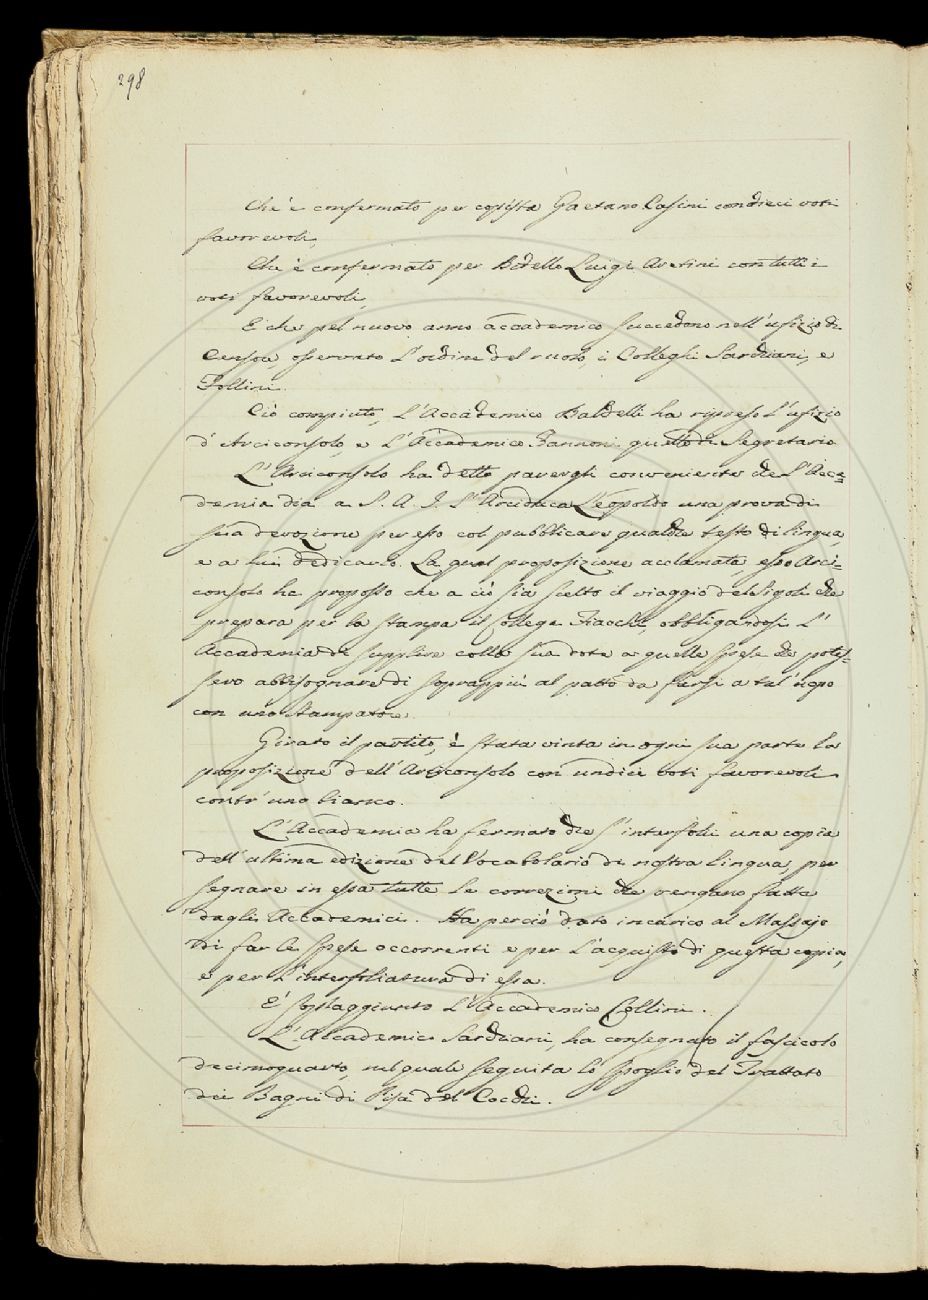 298
Che è confermato per copista Gaetano Casini con dieci voti
favorevoli,
Che è confermato per Bidello Luigi Aretini con tutti i
voti favorevoli,
E che pel nuovo anno accademico succedono nell'ufizio di
Censori, osservato l'ordine del ruolo, i Colleghi Sarchiani, e
Follini.
Ciò compiuto, L'Accademico Baldelli ha ripreso l'ufizio
d'Arciconsolo, e L'Accademico Zannoni quello di Segretario.
L'Arciconsolo ha detto parergli conveniente che l'Acca=
demia dia a S. A. I. l'Arciduca Leopoldo una prova di
sua devozione per esso col pubblicare qualche testo di lingua,
e a lui dedicarlo. La qual proposizione acclamata, esso Arci=
consolo ha proposto che a ciò sia scelto il viaggio del Sigoli che
prepara per la stampa il Collega Fiacchi, obbligandosi L'
Accademia di supplire colla sua dote a quelle spese che potes=
sero abbisognare di soprappiù al patto da farsi a tal uopo
con uno Stampatore.
Girato il partito, è stata vinta in ogni sua parte la
proposizione dell'Arciconsolo con undici voti favorevoli
contr'uno bianco.
L'Accademia ha fermato che s'interfolii una copia
dell'ultima edizione del Vocabolario di nostra lingua, per
segnare in essa tutte le correzioni che vengano fatte
dagli Accademici. Ha perciò dato incarico al Massajo
di far le spese occorrenti e per l'acquisto di questa copia,
e per l'interfoliatura di essa.
E' sopraggiunto L'Accademico Collini.
L'Accademico Sarchiani, ha consegnato il fascicolo
decimoquarto, nel quale seguita lo spoglio del Trattato
dei Bagni di Pisa del Cocchi.